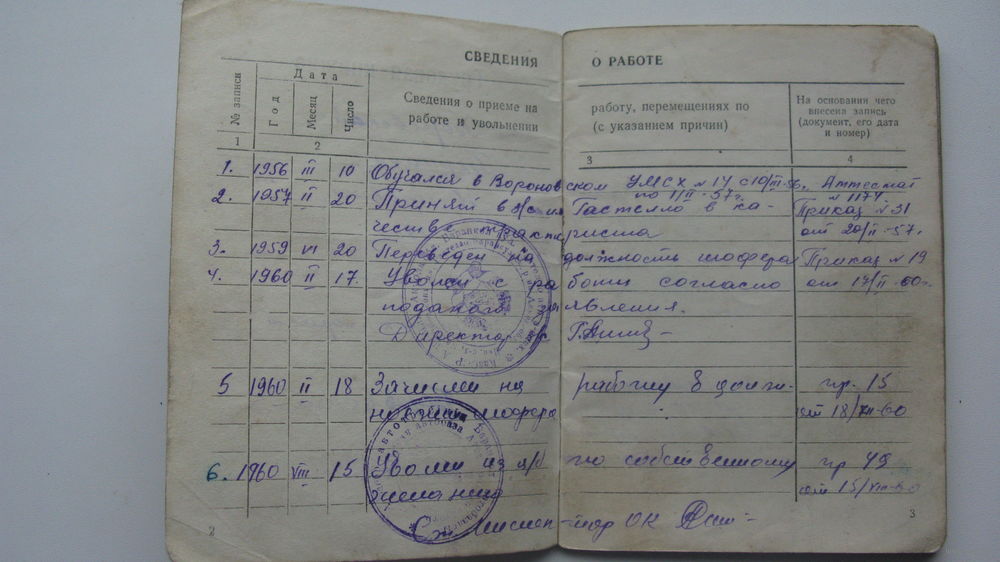 СВЕДЕНИЯ О РАБОТЕ
№ записи
Дата
Год
Месяц
Число
Сведения о приеме на
работе и увольнении
работу, перемещениях по
(с указанием причин)
На основании чего
внесена запись
(документ, его дата
и номер)
1 2 3 4
1. 1956 III 10 Обучался в Вороновском УМСХ №17 с 10/III-56. Аттестат
по 1/II-57г. №1174
2. 1957 II 20 Принят в з/с им Гастелло в ка- Приказ №31
честве тракториста от 20/II-57.
3. 1959 VI 20 Переведен на должность шофера Приказ №19
4. 1960 II 17. Уволен с работы согласно от 17/II-60г.
поданого заявления.
Директор з/с
5 1960 II 18 Зачислен на работу в долж- пр. 15
ности шофера от 18/-60
6. 1960 VIII 15 Уволен из а/б по собственному пр 49
желанию от 15/VIII-60
Ст. инспектор ОК
2
3